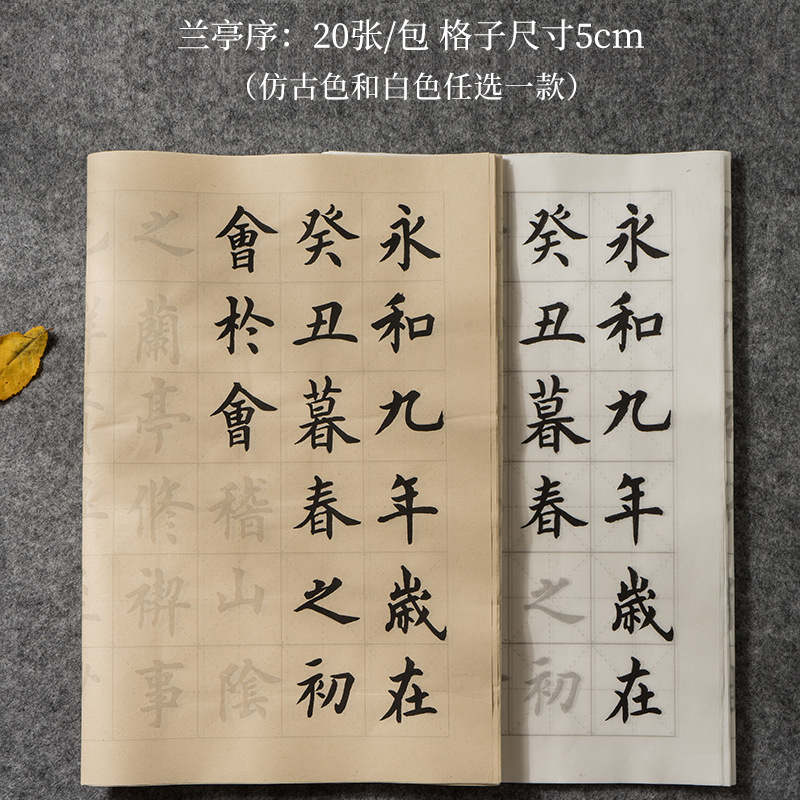 兰亭序：20张/包 格子尺寸5cm
（仿古色和白色任选一款）
永和九年歲在
癸丑暮春之初
會於會稽山陰
之蘭亭修禊事
永和九年歲在
癸丑暮春之初